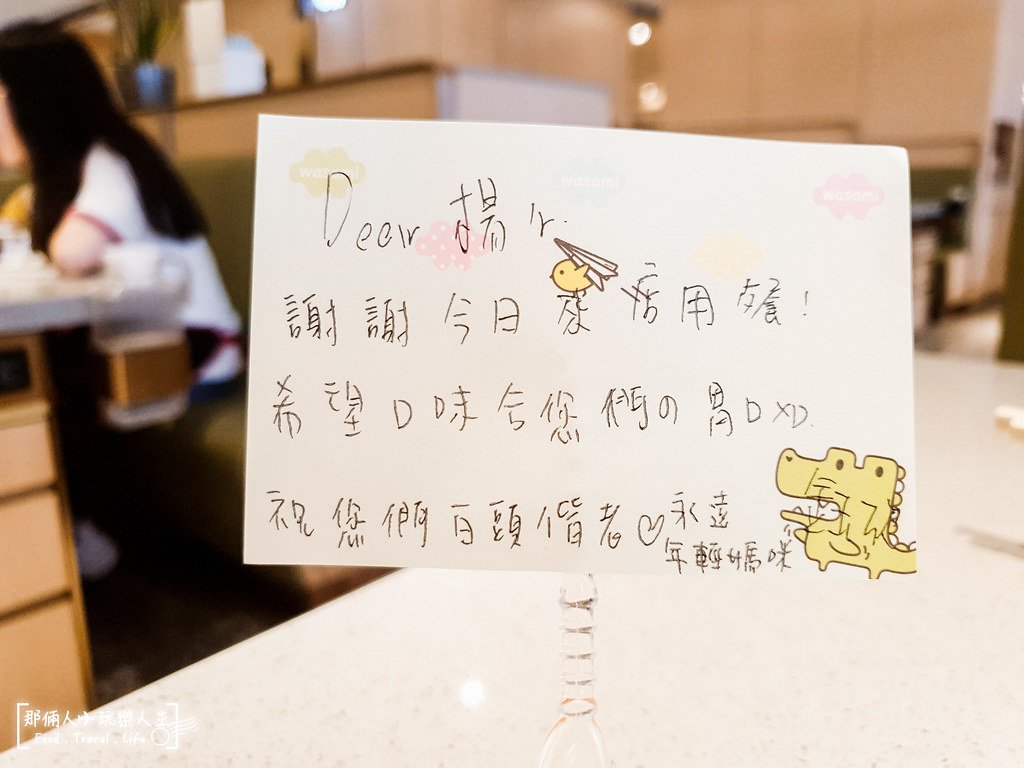 wasami
wasami
wasami
Dear 楊 'r.
謝謝今日來店用餐!
希望口味合您們の胃口XD.
祝您們百頭偕老♡永遠
年輕媽咪
那倆人小玩樂人生
Food . Travel . Life